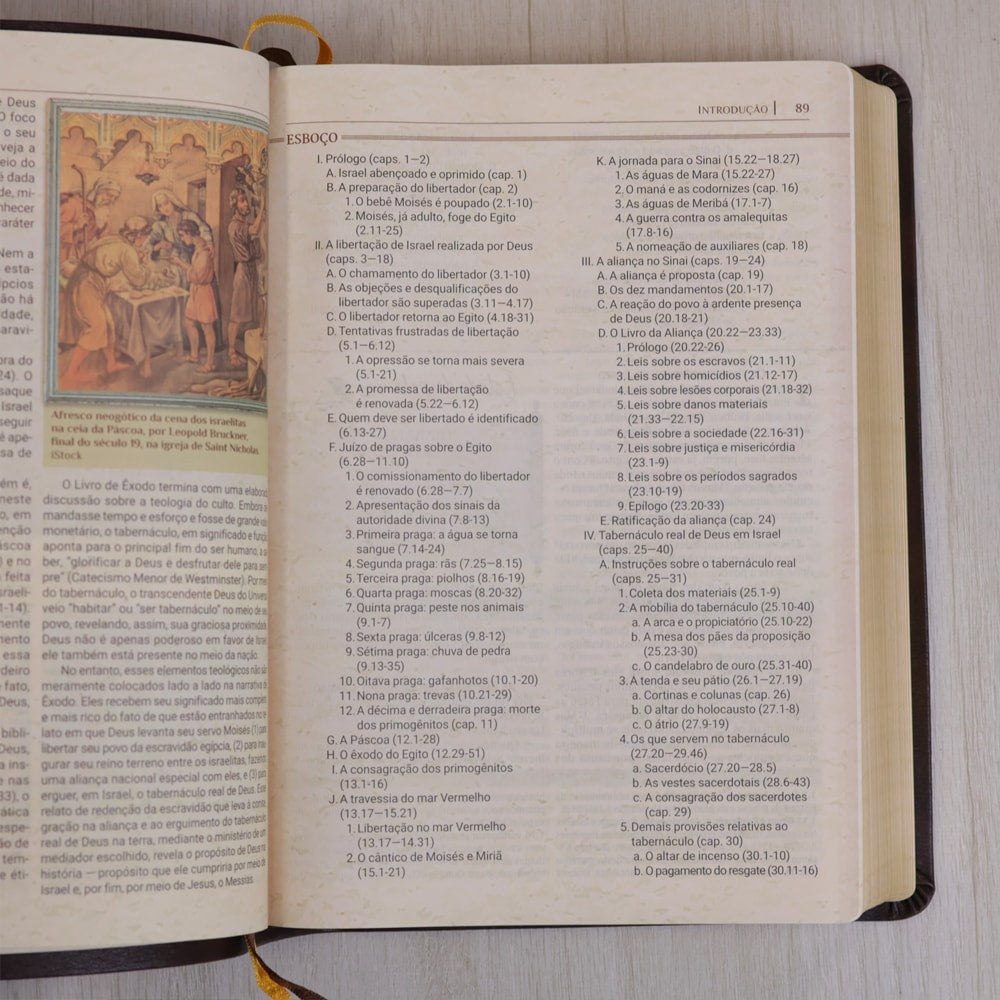 e Deus
O foco
o seu
veja a
eio do
é dada
de, mi-
nhecer
caráter
Nem a
esta-
ípcios
ão há
idade,
aravi-
ora do
24). O
saque
Israel
seguir
é ape-
sa de
ém é,
neste
o, em
enção
áscoa
) e no
feita
sraeli-
1-14).
mente
mento
essa
rdeiro
fato,
Deus,
bibli-
Deus,
a ins-
e nas
33), o
ática
espe-
ão de
tem-
e éti-
Afresco neogótico da cena dos israelitas
na ceia da Páscoa, por Leopold Bruckner,
final do século 19, na igreja de Saint Nicholas.
iStock
O Livro de Êxodo termina com uma elaborada
discussão sobre a teologia do culto. Embora
mandasse tempo e esforço e fosse de grande
monetário, o tabernáculo, em significado e função,
aponta para o principal fim do ser humano, a sa-
ber, "glorificar a Deus e desfrutar dele para sem-
pre" (Catecismo Menor de Westminster). Por meio
do tabernáculo, o transcendente Deus do Universo
veio "habitar" ou "ser tabernáculo" no meio de seu
povo, revelando, assim, sua graciosa proximidade.
Deus não é apenas poderoso em favor de Israel,
ele também está presente no meio da nação.
No entanto, esses elementos teológicos não são
meramente colocados lado a lado na narrativa de
Êxodo. Eles recebem seu significado mais completo
e mais rico do fato de que estão entranhados no re-
lato em que Deus levanta seu servo Moisés (1) para
libertar seu povo da escravidão egípcia, (2) para inau-
gurar seu reino terreno entre os israelitas, fazendo
uma aliança nacional especial com eles, e (3) para
erguer, em Israel, o tabernáculo real de Deus. Esse
relato de redenção da escravidão que leva à consa-
gração na aliança e ao erguimento do tabernáculo
real de Deus na terra, mediante o ministério de um
mediador escolhido, revela o propósito de Deus na
história — propósito que ele cumpriria por meio de
Israel e, por fim, por meio de Jesus, o Messias.
INTRODUÇÃO | 89
ESBOÇO
I. Prólogo (caps. 1—2)
A. Israel abençoado e oprimido (cap. 1)
B. A preparação do libertador (cap. 2)
1. O bebê Moisés é poupado (2.1-10)
2. Moisés, já adulto, foge do Egito
(2.11-25)
II. A libertação de Israel realizada por Deus
(caps. 3—18)
A. O chamamento do libertador (3.1-10)
B. As objeções e desqualificações do
libertador são superadas (3.11—4.17)
C. O libertador retorna ao Egito (4.18-31)
D. Tentativas frustradas de libertação
(5.1—6.12)
1. A opressão se torna mais severa
(5.1-21)
2. A promessa de libertação
é renovada (5.22—6.12)
E. Quem deve ser libertado é identificado
(6.13-27)
F. Juízo de pragas sobre o Egito
(6.28—11.10)
1. O comissionamento do libertador
é renovado (6.28—7.7)
2. Apresentação dos sinais da
autoridade divina (7.8-13)
3. Primeira praga: a água se torna
sangue (7.14-24)
4. Segunda praga: rãs (7.25—8.15)
5. Terceira praga: piolhos (8.16-19)
6. Quarta praga: moscas (8.20-32)
7. Quinta praga: peste nos animais
(9.1-7)
8. Sexta praga: úlceras (9.8-12)
9. Sétima praga: chuva de pedra
(9.13-35)
10. Oitava praga: gafanhotos (10.1-20)
11. Nona praga: trevas (10.21-29)
12. A décima e derradeira praga: morte
dos primogênitos (cap. 11)
G. A Páscoa (12.1-28)
H. O êxodo do Egito (12.29-51)
I. A consagração dos primogênitos
(13.1-16)
J. A travessia do mar Vermelho
(13.17—15.21)
1. Libertação no mar Vermelho
(13.17—14.31)
2. O cântico de Moisés e Miriã
(15.1-21)
K. A jornada para o Sinai (15.22—18.27)
1. As águas de Mara (15.22-27)
2. O maná e as codornizes (cap. 16)
3. As águas de Meribá (17.1-7)
4. A guerra contra os amalequitas
(17.8-16)
5. A nomeação de auxiliares (cap. 18)
III. A aliança no Sinai (caps. 19—24)
A. A aliança é proposta (cap. 19)
B. Os dez mandamentos (20.1-17)
C. A reação do povo à ardente presença
de Deus (20.18-21)
D. O Livro da Aliança (20.22—23.33)
1. Prólogo (20.22-26)
2. Leis sobre os escravos (21.1-11)
3. Leis sobre homicídios (21.12-17)
4. Leis sobre lesões corporais (21.18-32)
5. Leis sobre danos materiais
(21.33—22.15)
6. Leis sobre a sociedade (22.16-31)
7. Leis sobre justiça e misericórdia
(23.1-9)
8. Leis sobre os períodos sagrados
(23.10-19)
9. Epílogo (23.20-33)
E. Ratificação da aliança (cap. 24)
IV. Tabernáculo real de Deus em Israel
(caps. 25—40)
A. Instruções sobre o tabernáculo real
(caps. 25—31)
1. Coleta dos materiais (25.1-9)
2. A mobília do tabernáculo (25.10-40)
a. A arca e o propiciatório (25.10-22)
b. A mesa dos pães da proposição
(25.23-30)
c. O candelabro de ouro (25.31-40)
3. A tenda e seu pátio (26.1—27.19)
a. Cortinas e colunas (cap. 26)
b. O altar do holocausto (27.1-8)
c. O átrio (27.9-19)
4. Os que servem no tabernáculo
(27.20—29.46)
a. Sacerdócio (27.20—28.5)
b. As vestes sacerdotais (28.6-43)
c. A consagração dos sacerdotes
(cap. 29)
5. Demais provisões relativas ao
tabernáculo (cap. 30)
a. O altar de incenso (30.1-10)
b. O pagamento do resgate (30.11-16)